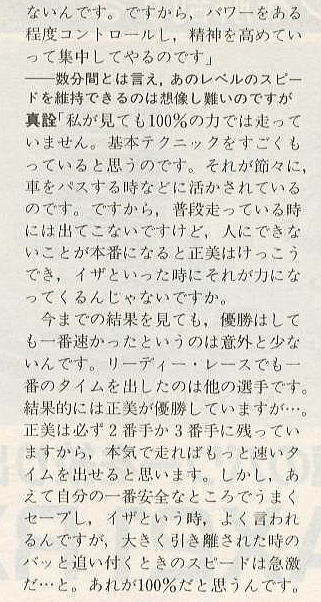 ないんです。ですから，パワーをある
程度コントロールし，精神を高めてい
って集中してやるのです」
――数分間とは言え，あのレベルのスピー
ドを維持できるのは想像し難いのですが
真詮「私が見ても100%の力では走って
いません。基本テクニックをすごくも
っていると思うのです。それが節々に，
車をパスする時などに活かされている
のです。ですから，普段走っている時
には出てこないですけど，人にできな
いことが本番になると正美はけっこう
でき，イザといった時にそれが力にな
ってくるんじゃないですか。
　今までの結果を見ても，優勝はして
も一番速かったというのは意外と少な
いんです。リーディー・レースでも一
番のタイムを出したのは他の選手です。
結果的には正美が優勝していますが…。
正美は必ず2番手か3番手に残ってい
ますから，本気で走ればもっと速いタ
イムを出せると思います。しかし，あ
えて自分の一番安全なところでうまく
セーブし，イザという時，よく言われ
るんですが，大きく引き離された時の
バッと追い付くときのスピードは急激
だ…と。あれが100%だと思うんです。